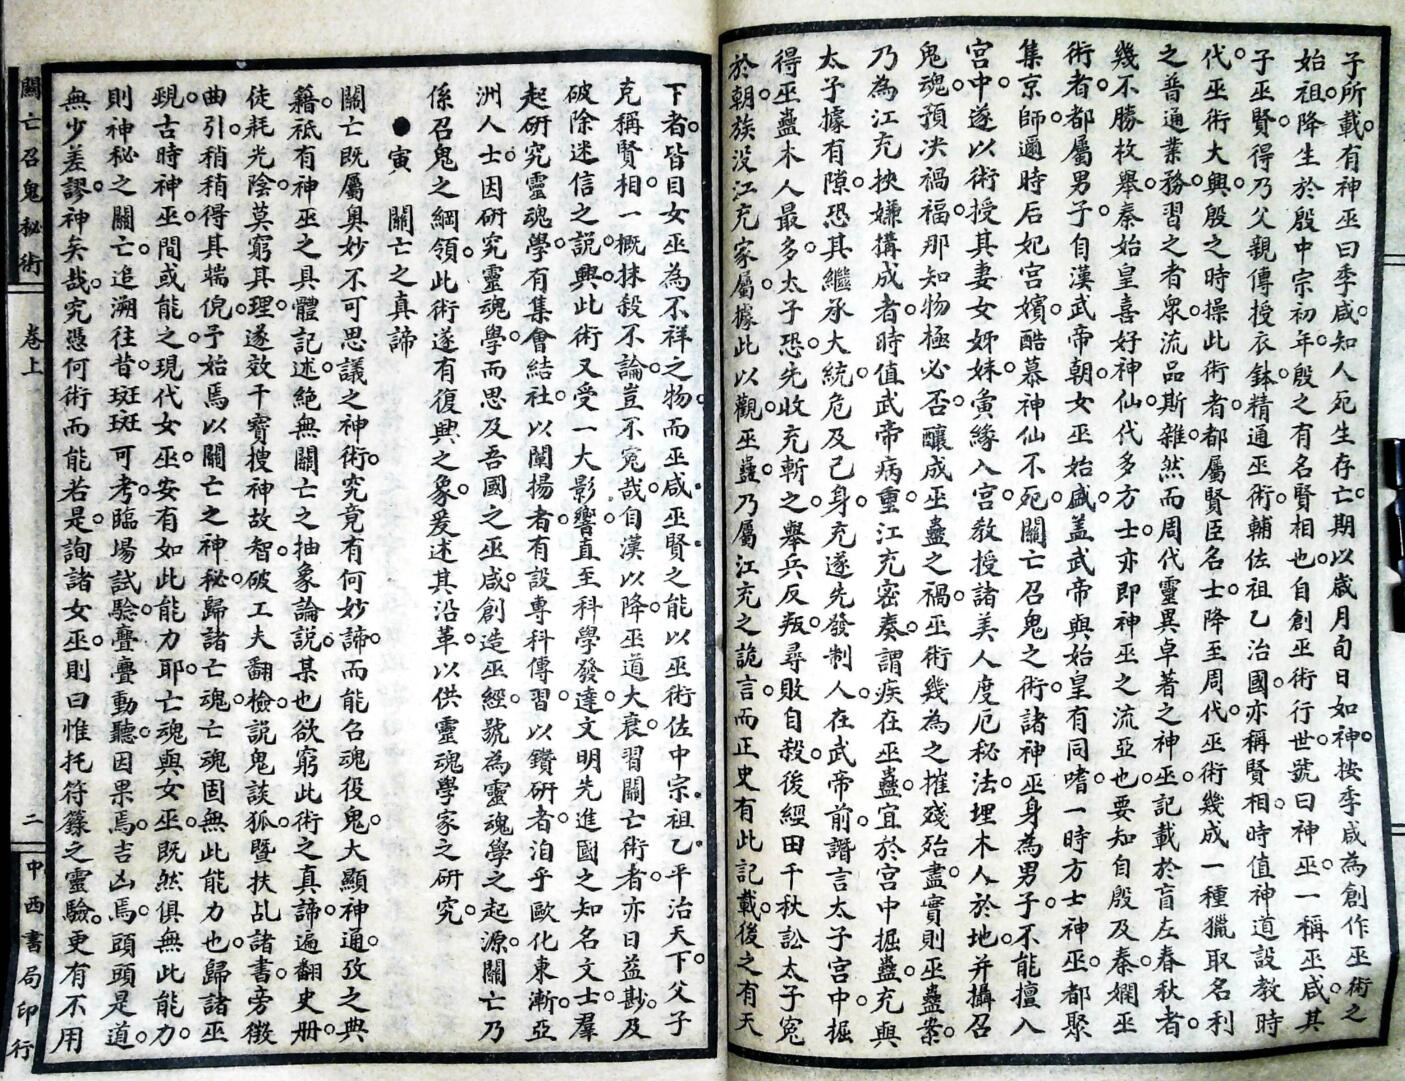 子所載有神巫曰季咸知人死生存亡期以歲月旬日如神按季咸為創作巫術之
始祖降生於殷中宗初年殷之有名賢相也自創巫術行世號曰神巫一稱巫咸其
子巫賢得乃父親傳授衣鉢精通巫術輔佐祖乙治國亦稱賢相時值神道設教時
代巫術大興殷之時操此術者都屬賢臣名士降至周代巫術幾成一種獵取名利
之普通業務習之者眾流品斯雜然而周代靈異卓著之神巫記載於盲左春秋者
幾不勝枚舉秦始皇喜好神仙代多方士亦即神巫之流亞也要知自殷及秦嫻巫
術者都屬男子自漢武帝朝女巫始盛蓋武帝與始皇有同嗜一時方士神巫都聚
集京師邇時后妃宮嬪酷慕神仙不死關亡召鬼之術諸神巫身為男子不能擅入
宮中遂以術授其妻女姊妹夤緣入宮教授諸美人度厄秘法埋木人於地并攝召
鬼魂預決禍福那知物極必否釀成巫蠱之禍巫術幾為之摧殘殆盡實則巫蠱案
乃為江充挾嫌搆成者時值武帝病重江充密奏謂疾在巫蠱宜於宮中掘蠱充與
太子據有隙恐其繼承大統危及己身充遂先發制人在武帝前譖言太子宮中掘
得巫蠱木人最多太子恐先收充斬之舉兵反叛尋敗自殺後經田千秋訟太子冤
於朝族沒江充家屬據此以觀巫蠱乃屬江充之詭言而正史有此記載後之有天
下者皆目女巫為不祥之物而巫咸巫賢之能以巫術佐中宗祖乙平治天下父子
克稱賢相一概抹殺不論豈不冤哉自漢以降巫道大衰習關亡術者亦日益尠及
破除迷信之說興此術又受一大影響直至科學發達文明先進國之知名文士羣
起研究靈魂學有集會結社以闡揚者有設專科傳習以鑽研者洎乎歐化東漸亞
洲人士因研究靈魂學而思及吾國之巫咸創造巫經號為靈魂學之起源關亡乃
係召鬼之綱領此術遂有復興之象爰述其沿革以供靈魂學家之研究
●寅 關亡之真諦
關亡既屬奧妙不可思議之神術究竟有何妙諦而能召魂役鬼大顯神通攷之典
籍祗有神巫之具體記述絕無關亡之抽象論說某也欲窮此術之真諦遍翻史冊
徒耗光陰莫窮其理遂效干寶搜神故智破工夫翻檢說鬼談狐暨扶乩諸書旁徵
曲引稍稍得其端倪予始焉以關亡之神秘歸諸亡魂亡魂固無此能力也歸諸巫
覡古時神巫間或能之現代女巫安有如此能力耶亡魂與女巫既然俱無此能力
則神秘之關亡追溯往昔斑斑可考臨場試驗亹亹動聽因果焉吉凶焉頭頭是道
無少差謬神矣哉究憑何術而能若是詢諸女巫則曰惟托符籙之靈驗更有不用
關亡召鬼秘術 卷上 二 中西書局印行